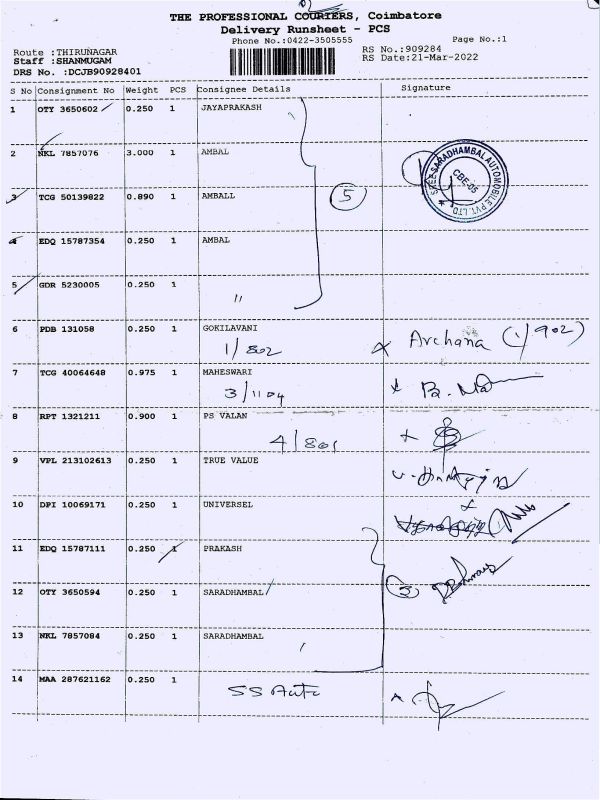 THE PROFESSIONAL COURIERS, Coimbatore
Delivery Runsheet - PCS
Phone No.:0422-3505555
Page No.:1
Route :THIRUNAGAR
RS No.:909284
Staff :SHANMUGAM
RS Date:21-Mar-2022
DRS No. :DCJB90928401
S No Consignment No Weight PCS Consignee Details Signature
1 OTY 3650602 0.250 1 JAYAPRAKASH
2 NKL 7857076 3.000 1 AMBAL
SREE SARADHAMBAL AUTOMOBILE PVT. LTD
CBE-05
3 TCG 50139822 0.890 1 AMBALL
5
4 EDQ 15787354 0.250 1 AMBAL
5 GDR 5230005 0.250 1
"
6 PDB 131058 0.250 1 GOKILAVANI
1/802
Archana (1/902)
7 TCG 40064648 0.975 1 MAHESWARI
3/1104
8 RPT 1321211 0.900 1 PS VALAN
4/801
9 VPL 213102613 0.250 1 TRUE VALUE
10 DPI 10069171 0.250 1 UNIVERSEL
11 EDQ 15787111 0.250 1 PRAKASH
3
12 OTY 3650594 0.250 1 SARADHAMBAL
13 NKL 7857084 0.250 1 SARADHAMBAL
14 MAA 287621162 0.250 1
SS Auto